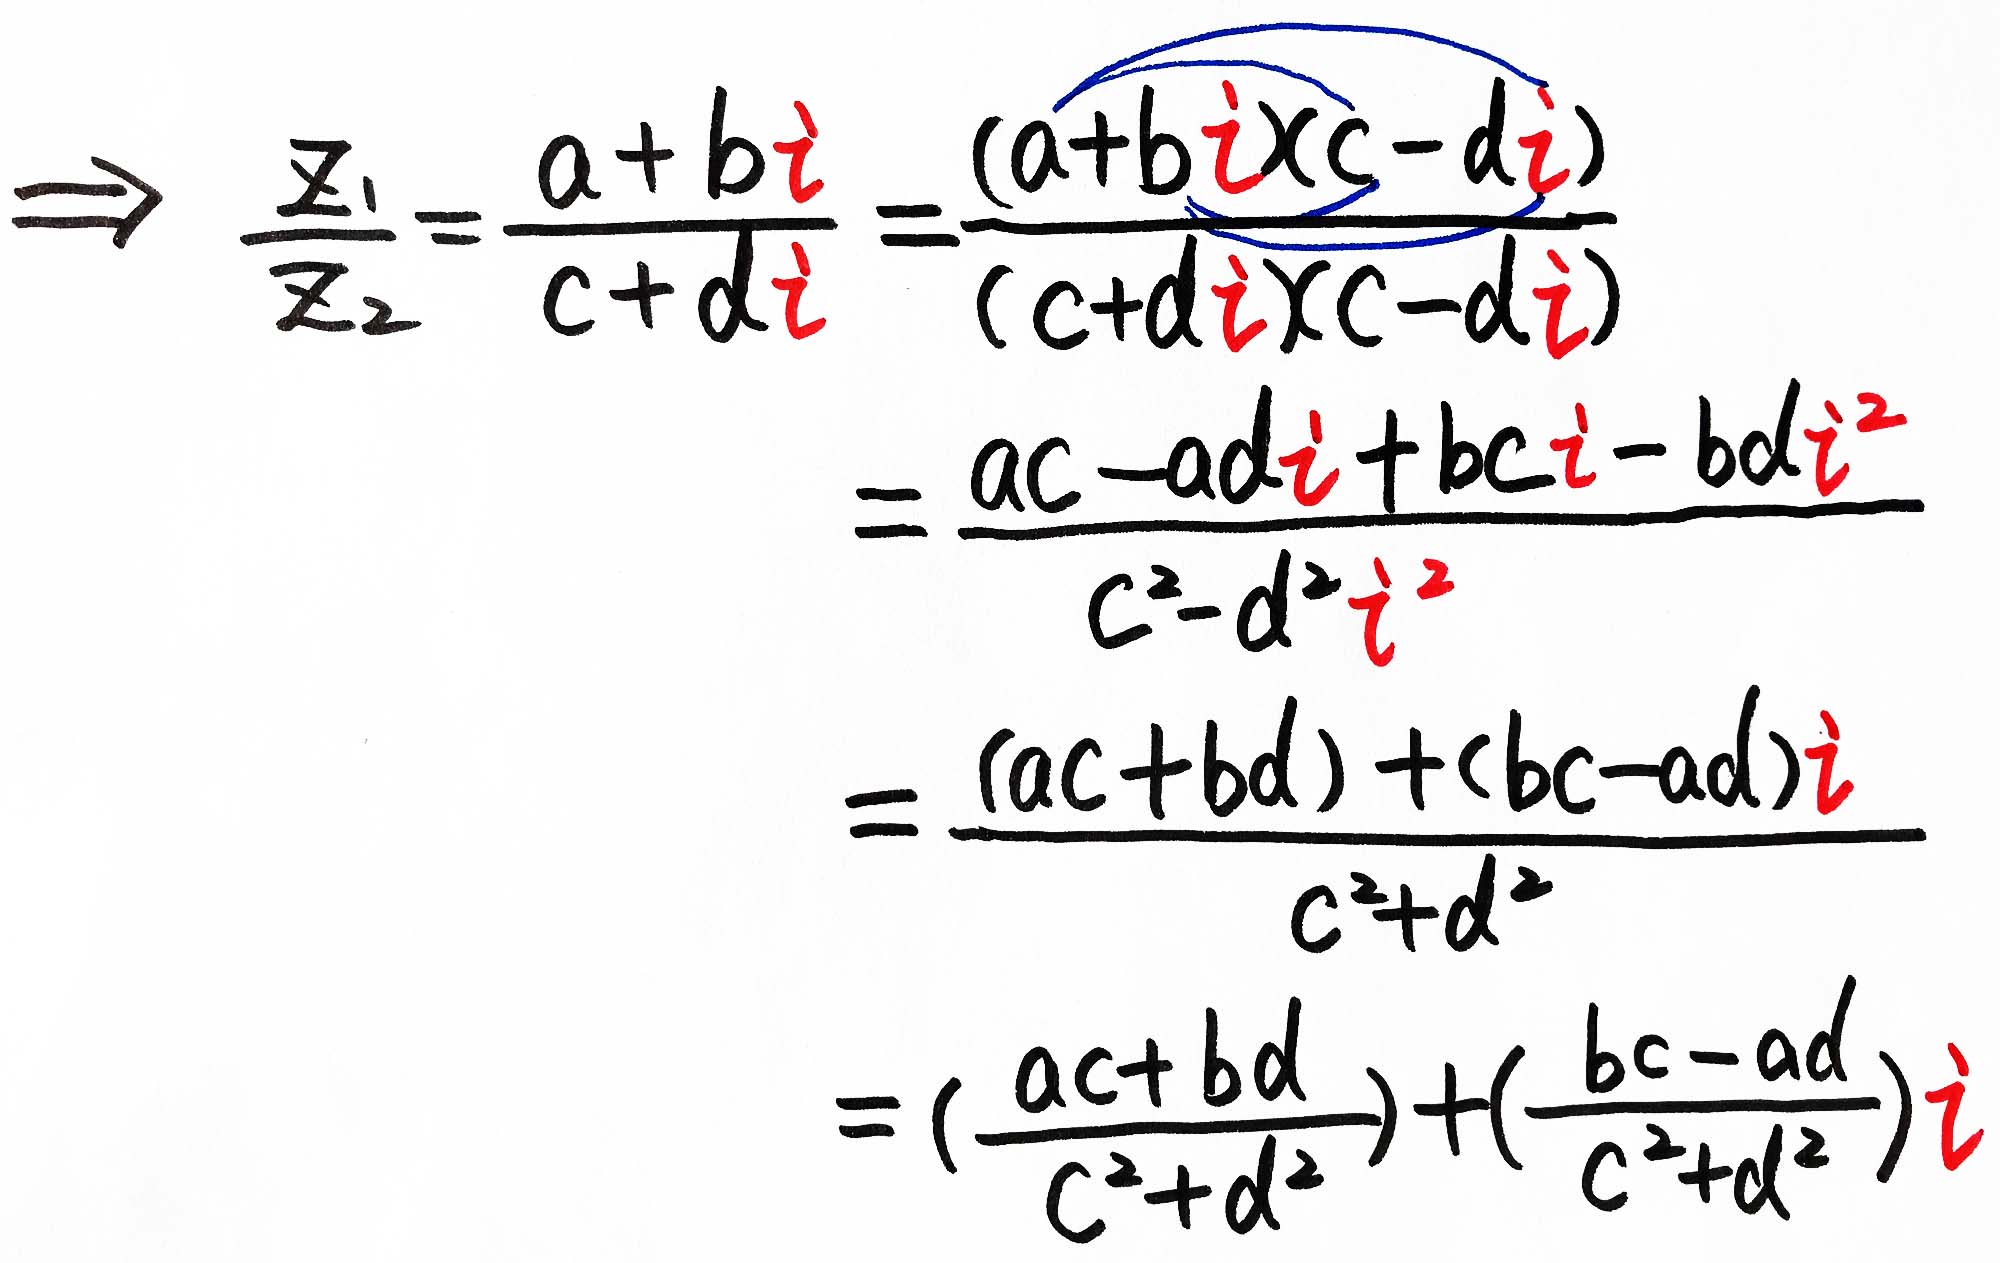 ⇒ z₁/z₂ = (a+bi)/(c+di) = ((a+bi)(c-di))/((c+di)(c-di))
= (ac-adi+bci-bdi²)/(c²-d²i²)
= ((ac+bd)+(bc-ad)i)/(c²+d²)
= ((ac+bd)/(c²+d²))+((bc-ad)/(c²+d²))i